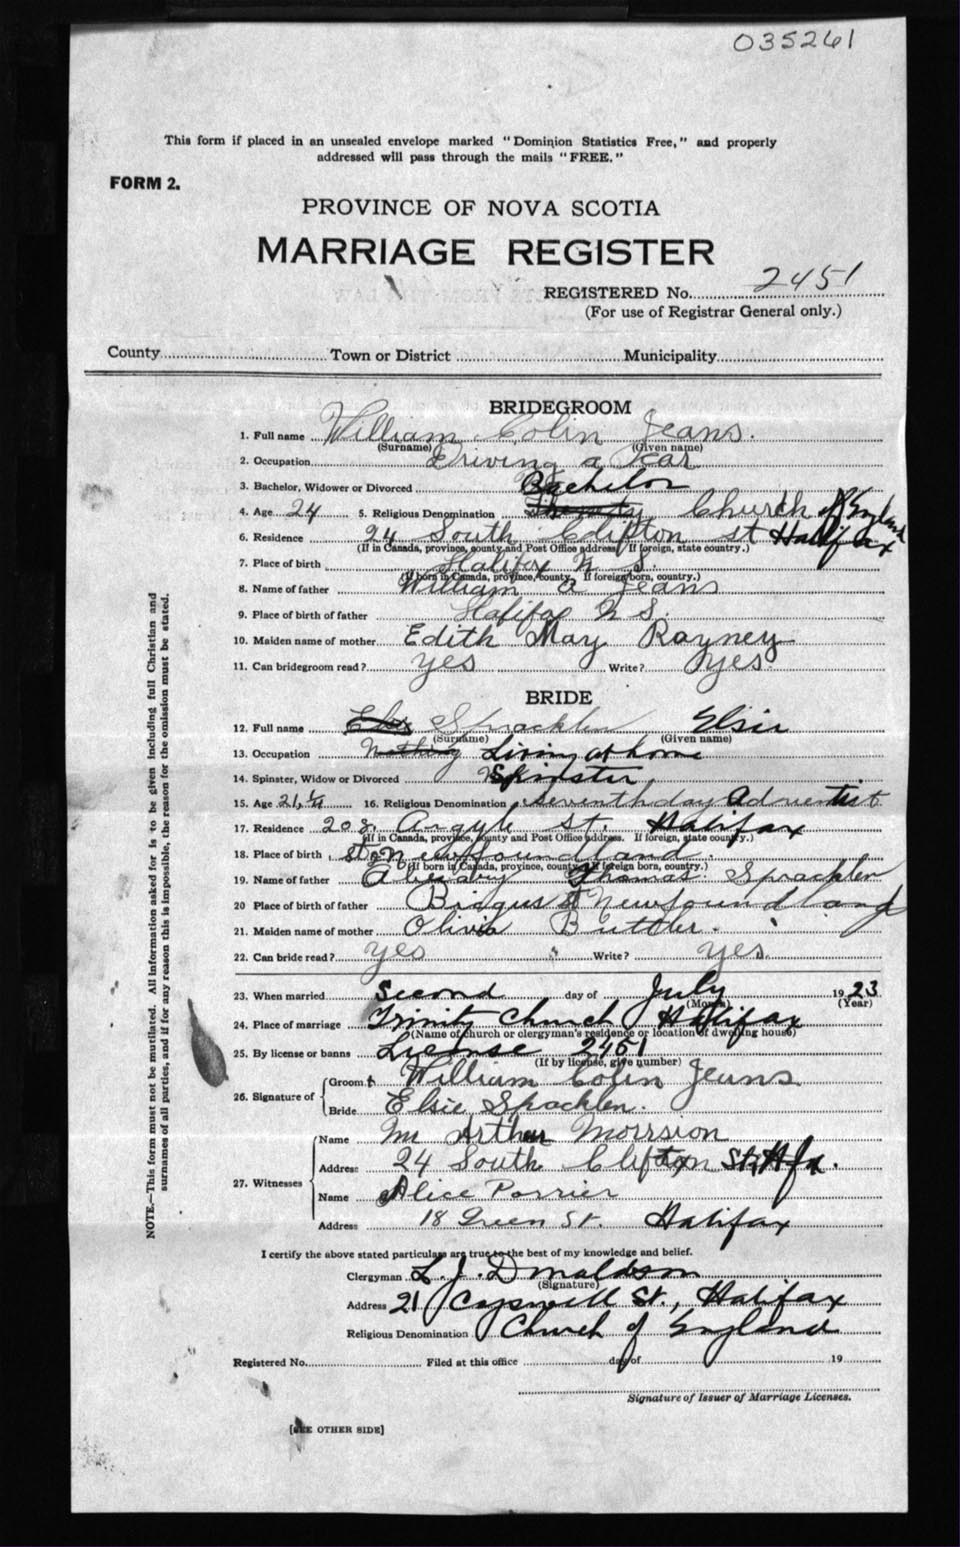 035261
This form if placed in an unsealed envelope marked "Dominion Statistics Free," and properly
addressed will pass through the mails "FREE."
FORM 2.
PROVINCE OF NOVA SCOTIA
MARRIAGE REGISTER
REGISTERED No. 2451
(For use of Registrar General only.)
County Town or District Municipality
BRIDEGROOM
1. Full name William Colin Jeans.
(Surname) (Given name)
2. Occupation Driving a Car
3. Bachelor, Widower or Divorced Bachelor
4. Age 24 5. Religious Denomination Church of England
6. Residence 24 South Clifton st Halifax
(If in Canada, province, county and Post Office address. If foreign, state country.)
7. Place of birth Halifax N S.
(If born in Canada, province, county. If foreign born, country.)
8. Name of father William a Jeans
9. Place of birth of father Halifax N S.
10. Maiden name of mother Edith May Rayney
11. Can bridegroom read? yes Write? yes.
BRIDE
12. Full name Elsie Spracklen Elsie
(Surname) (Given name)
13. Occupation Nothing Living at home
14. Spinster, Widow or Divorced Spinster
15. Age 21 16. Religious Denomination seventh day Adventist
17. Residence 208 Argyle St. Halifax
(If in Canada, province, county and Post Office address. If foreign, state country.)
18. Place of birth Newfoundland.
(If born in Canada, province, county. If foreign born, country.)
19. Name of father Thomas Spracklen
20 Place of birth of father Brigus Newfoundland
21. Maiden name of mother Olivia Buttler.
22. Can bride read? yes Write? yes.
23. When married Second day of July 1923
(Month) (Year)
24. Place of marriage Trinity Church Halifax
(Name of church or clergyman's residence or location of dwelling house)
25. By license or banns License 2451
(If by license, give number)
26. Signature of Groom William Colin Jeans
Bride Elsie Spracklen.
27. Witnesses Name Mr Arthur Morrsion
Address 24 South Clifton St, Hfx.
Name Alice Porrier
Address 18 Green St. Halifax
I certify the above stated particulars are true to the best of my knowledge and belief.
Clergyman L. J. Donaldson
(Signature)
Address 21 Cogswell St., Halifax
Religious Denomination Church of England
Registered No. Filed at this office day of 19
Signature of Issuer of Marriage Licenses.
[SEE OTHER SIDE]
NOTE.—This form must not be mutilated. All information asked for is to be given including full Christian and
surnames of all parties, and if for any reason this is impossible, the reason for the omission must be stated.